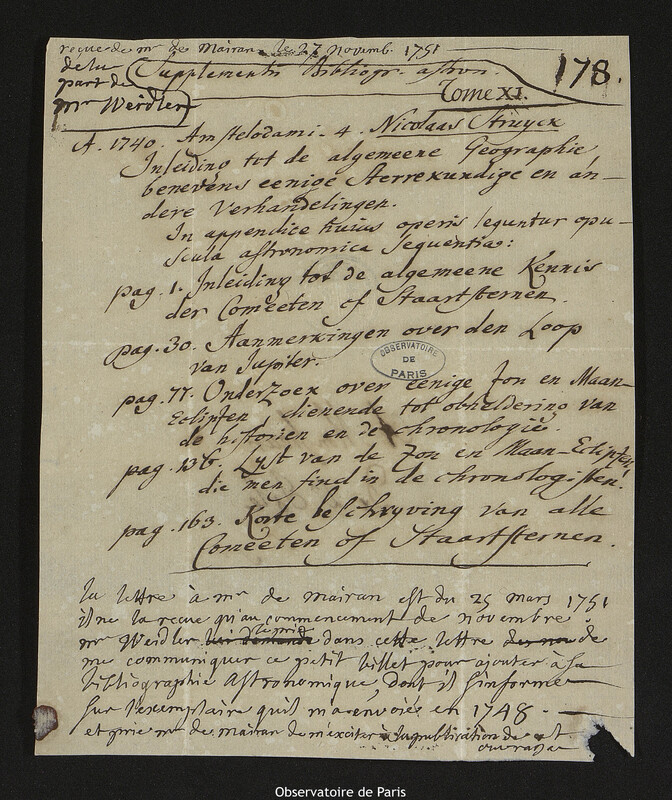 recue de mr de Mairan le 27 novemb. 1751
de la
part de
mr Weidler
Supplementu Bibliogr. astron.
Tome XI.
178.
A. 1740. Amstelodami. 4. Nicolaas Struyck
Inleiding tot de algemeene Geographie,
benevens eenige sterrekundige en an-
dere verhandelingen.
In appendice huius operis leguntur opu-
scula astronomica sequentia:
pag. 1. Inleiding tot de algemeene Kennis
der Comeeten of Staartsternen.
pag. 30. Aanmerkingen over den Loop
van Jupiter.
OBSERVATOIRE
DE
PARIS
pag. 77. Onderzoek over eenige Zon en Maan-
Eclipsen dienende tot opheldering van
de historien en de chronologie.
pag. 136. Lyst van de Zon en Maan-Eclipsen,
die men find in de chronologisten.
pag. 163. Korte beschryving van alle
Comeeten of Staartsternen.
la lettre à mr de mairan est du 25 mars 1751
il ne la recue qu'au commencement de novembre.
mr Weidler le prie dans cette lettre de
me communiquer ce petit billet pour ajouter à sa
bibliographie Astronomique, dont il s'informe
sur l'exemplaire qu'il m'a envoiée en 1748.
et prie mr de mairan de m'exciter à la publication de
ouvrage
Observatoire de Paris